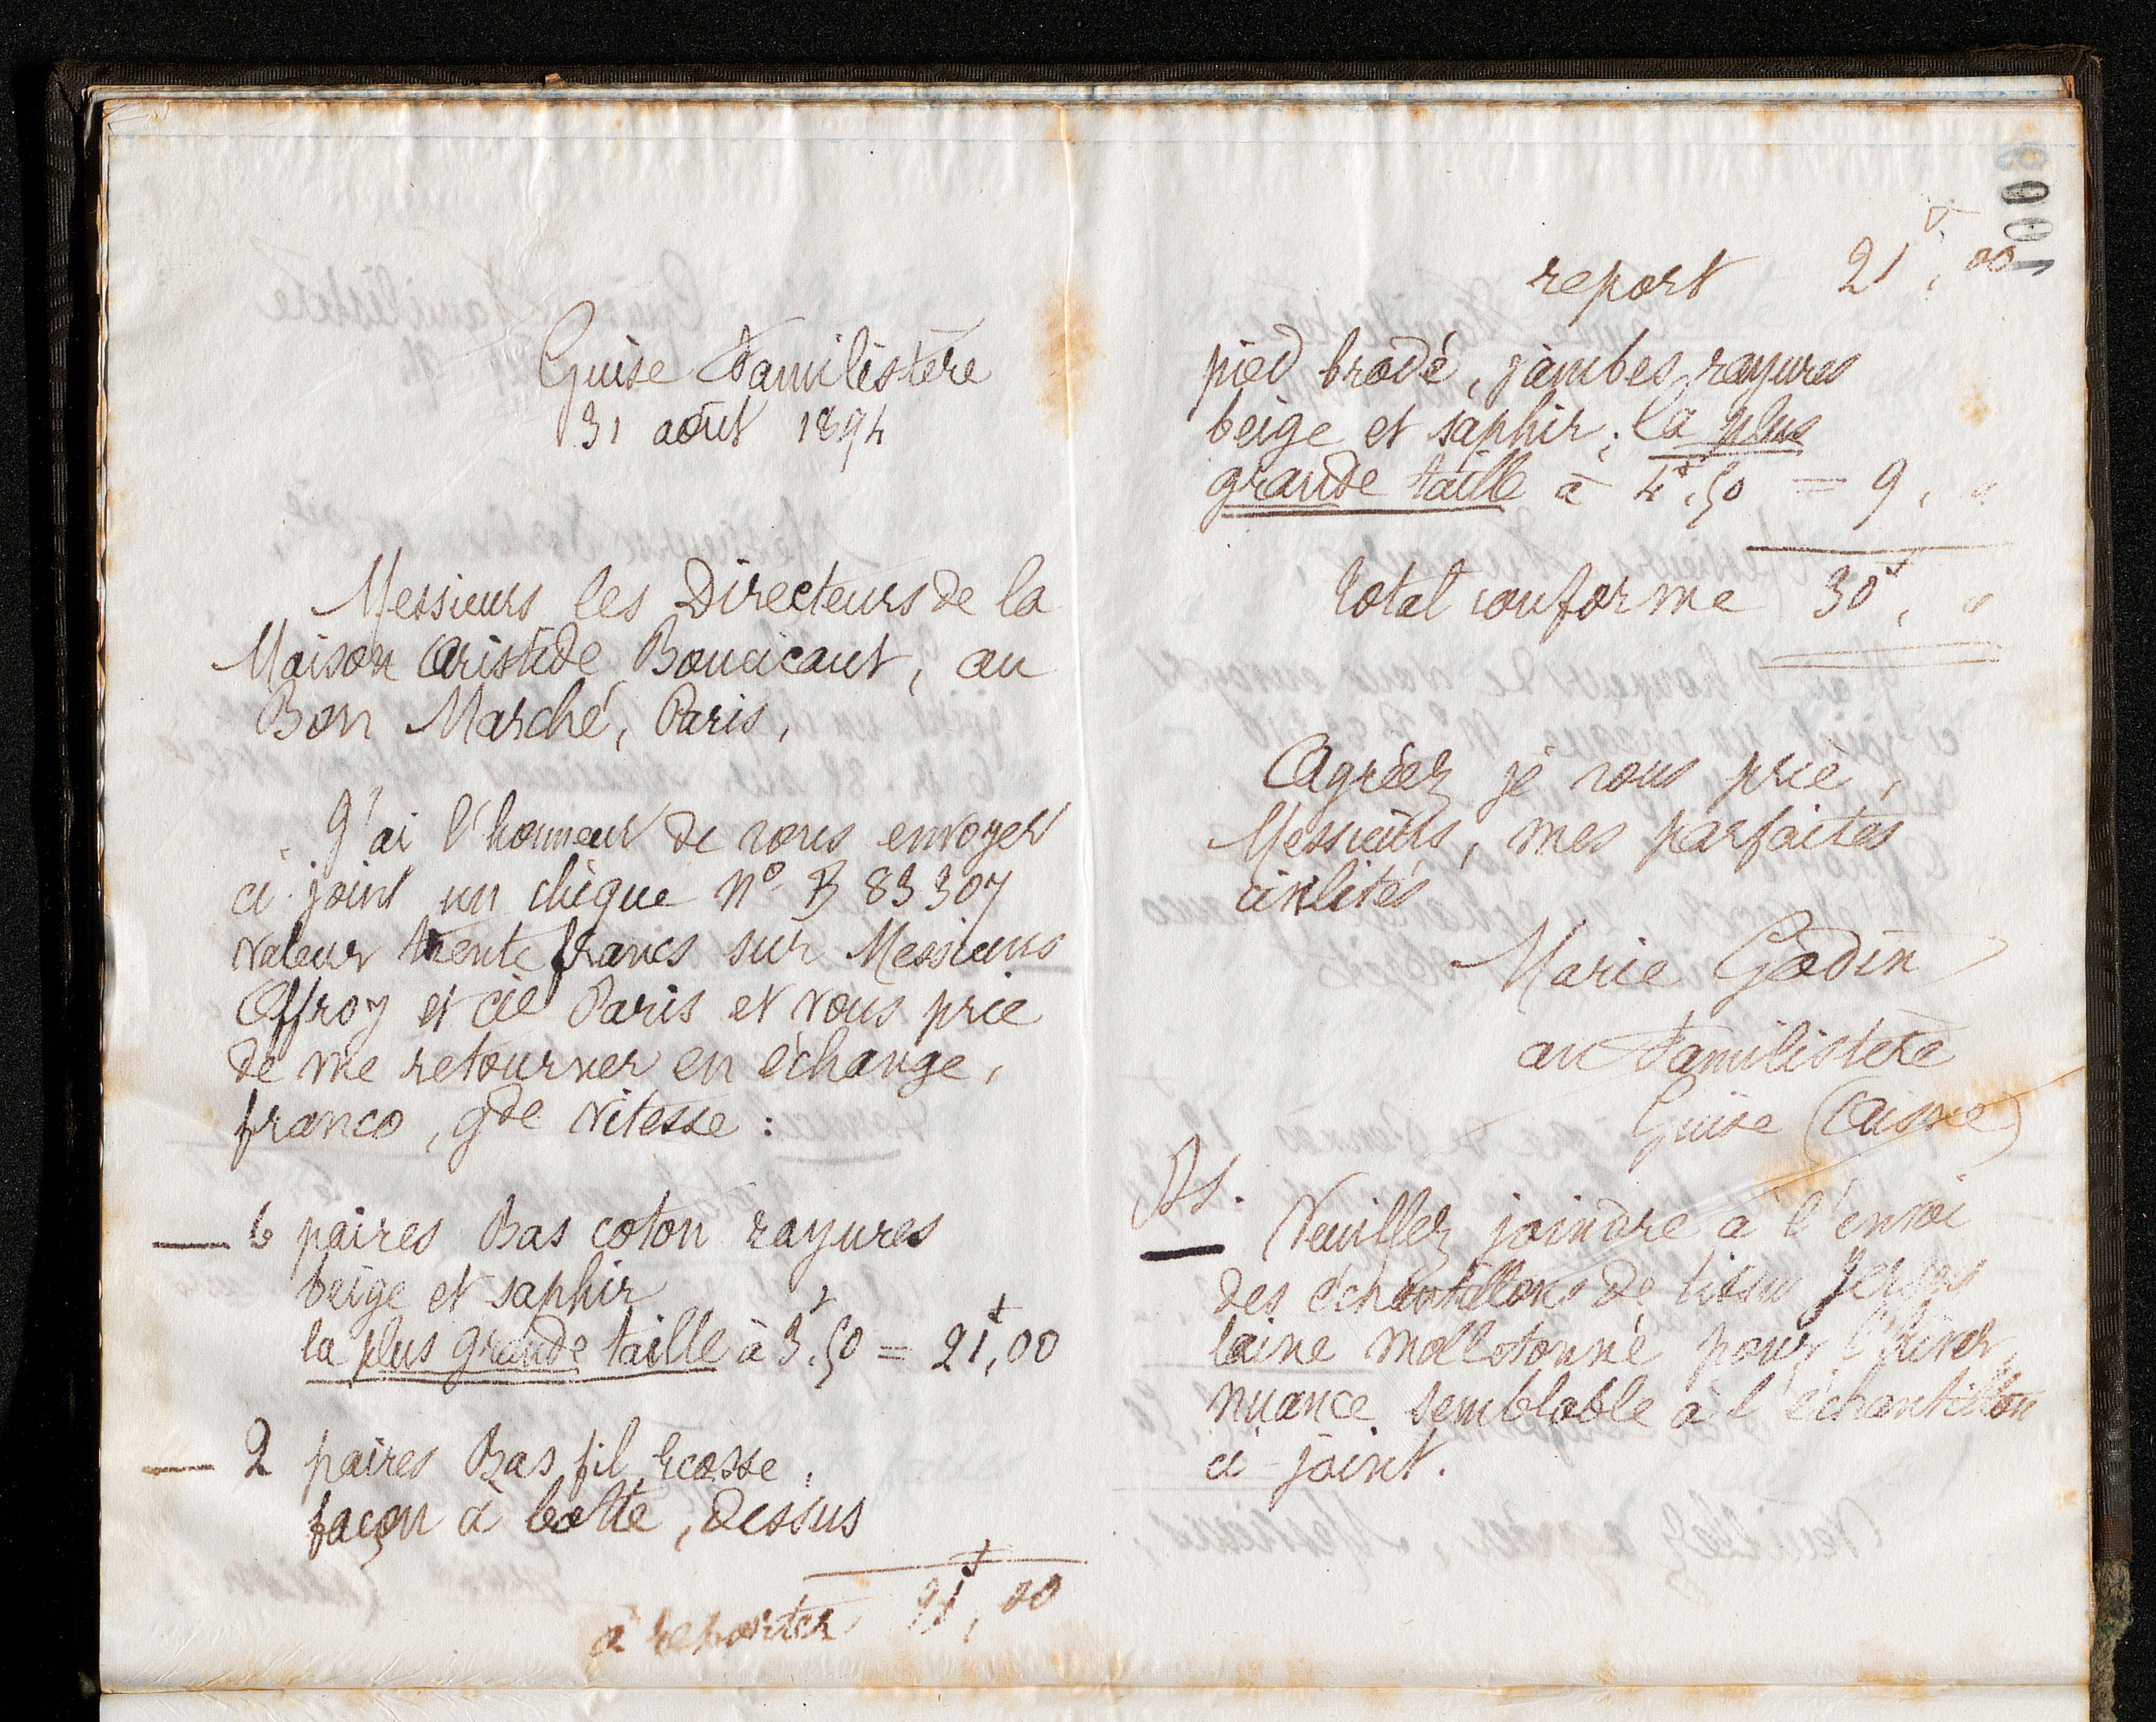 Guise Familistère
31 août 1894
Messieurs les Directeurs de la
Maison Aristide Boucicaut, au
Bon Marché, Paris,
J'ai l'honneur de vous envoyer
ci-joint un chèque N° B 83307
valeur trente francs sur Messieurs
Offroy et cie Paris et vous prie
de me retourner en échange,
franco, gde vitesse :
— 6 paires Bas coton rayures
beige et saphir
la plus grande taille à 3f,50 = 21f,00
— 2 paires Bas fil Ecosse,
façon à botte, dessus
à reporter 21f,00
1008
report 21f,00
pied brodé, jambes rayures
beige et saphir; la plus
grande taille à 4f,50 = 9, "
Total conforme 30f, "
Agréez je vous prie,
Messieurs, mes parfaites
civilités
Marie Godin
au Familistère
Guise (Aisne)
Ps. Veuillez joindre à l'envoi
des échantillons de tissu Jersey
laine molletonné pour l'hiver,
nuance semblable à l'échantillon
ci-joint.